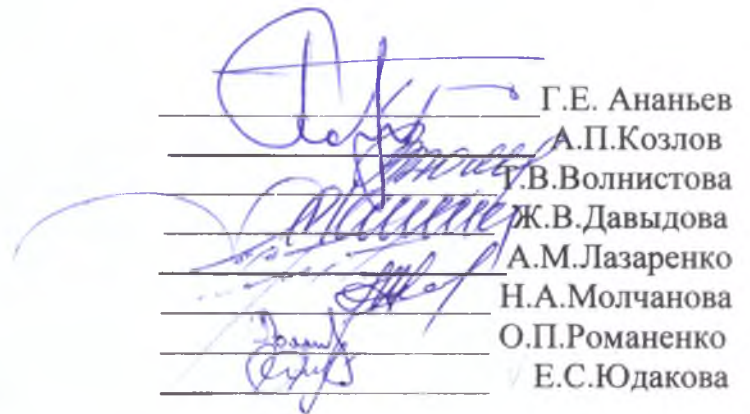 Г.Е. Ананьев
А.П.Козлов
Т.В.Волнистова
Ж.В.Давыдова
А.М.Лазаренко
Н.А.Молчанова
О.П.Романенко
Е.С.Юдакова